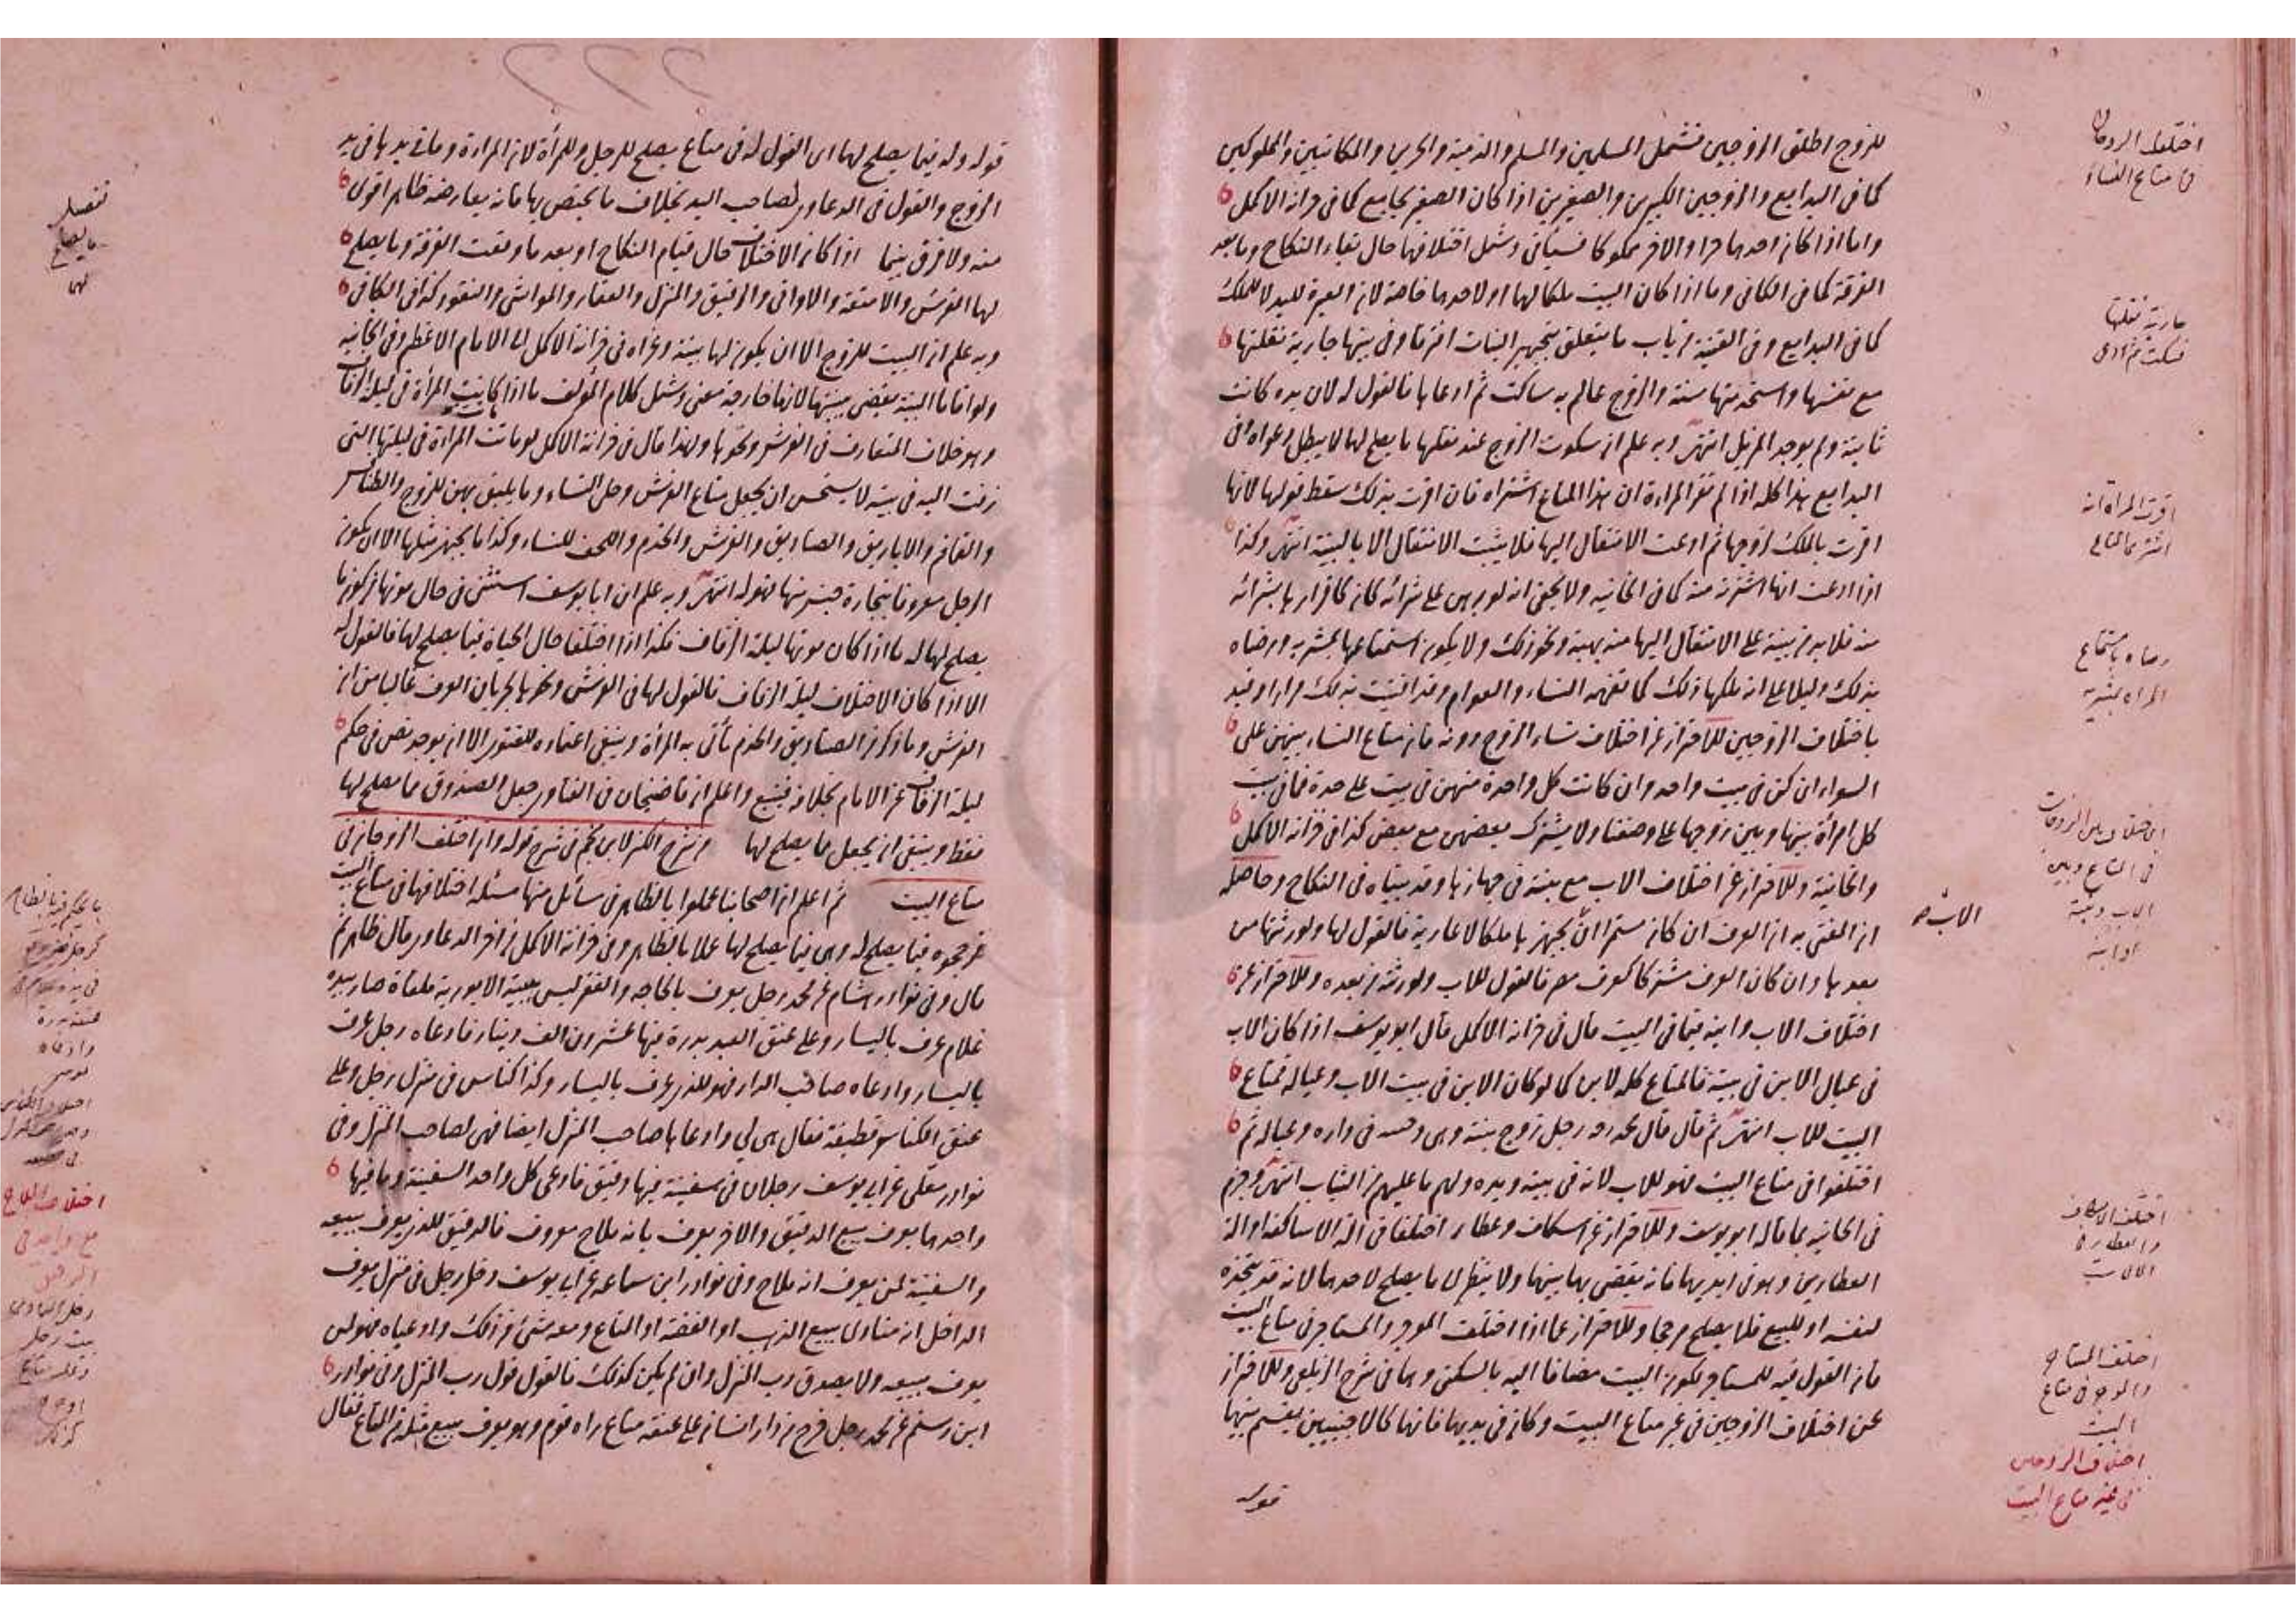 للزوج اطلق الزوجين فشمل المسلمين والمسلم والذمية والحرين والمكاتبين والمملوكين
كما في البدايع والزوجين الكبيرين والصغيرين اذا كان الصغير يجامع كما في خزانة الاكمل
واما اذا كان احدهما حرا والاخر مملوكا فسياتي وشمل اختلافهما حال بقاء النكاح وما بعد
الفرقة كما في الكافي وما اذا كان البيت ملكا لهما او لاحدهما خاصة لان العبرة لليد لا للملك
كما في البدايع وفي القنية من باب ما يتعلق بتجهيز البنات افترقا وفي بيتها جارية نقلتها
مع نفسها واستخدمتها سنة والزوج عالم به ساكت ثم ادعاها فالقول له لان يده كانت
ثابتة ولم يوجد المزيل انتهى وبه علم ان سكوت الزوج عند نقلها ما يصلح لهما لا يبطل دعواه وفي
البدايع هذا كله اذا لم تقر المراة ان هذا المتاع اشتراه فان اقرت بذلك سقط قولها لانها
اقرت بالملك لزوجها ثم ادعت الانتقال اليها فلا يثبت الانتقال الا بالبينة انتهى وكذا
اذا ادعت انها اشترته منه كما في الخانية ولا يخفى انه لو برهن على شرائه كان كاقرارها بشرائه
منه فلا بد من بينة على الانتقال اليها منه بهبة ونحو ذلك ولا يكون استمتاعها بمشريه ورضاه
بذلك دليلا على انه ملكها ذلك كما تفهمه النساء والعوام وقد افتيت بذلك مرارا وقيد
باختلاف الزوجين للاحتراز عن اختلاف نساء الزوج دونه فان متاع النساء بينهن على
السواء ان كن في بيت واحد وان كانت كل واحدة منهن في بيت على حدة فما في بيت
كل امرأة بينها وبين زوجها على ما وصفنا ولا يشترك بعضهن مع بعض كذا في خزانة الاكمل
والخانية وللاحتراز عن اختلاف الاب مع بنته في جهازها وقد بيناه في النكاح وحاصله
ان المفتى به ان العرف ان كان مستمرا ان الاب يجهزها ملكا لا عارية فالقول لها ولورثتها من
بعدها وان كان العرف مشتركا كعرف مصر فالقول للاب ولورثته من بعده وللاحتراز عن
اختلاف الاب وابنه فيما في البيت قال في خزانة الاكمل قال ابو يوسف اذا كان الاب
في عيال الابن في بيته فالمتاع كله للابن كما لو كان الابن في بيت الاب وعياله فمتاع
البيت للاب انتهى ثم قال قال محمد رجل زوج بنته وهي وختنه في داره وعياله ثم
اختلفوا في متاع البيت فهو للاب لانه في بيته ويده ولهم ما عليهم من الثياب انتهى وجزم
في الخانية بما قاله ابو يوسف وللاحتراز عن اسكاف وعطار اختلفا في الة الاساكفة او الة
العطارين وهو في ايديهما فانه يقضى بها بينهما ولا ينظر الى ما يصلح لاحدهما لانه قد يتخذه
لنفسه او للبيع فلا يصلح مرجحا وللاحتراز عما اذا اختلف الموجر والمستاجر في متاع البيت
فان القول فيه للمستاجر لكون البيت مضافا اليه بالسكنى وهما في شرح الزيلعي وللاحتراز
عن اختلاف الزوجين في غير متاع البيت وكان في يديهما فانهما كالاجنبيين يقسم بينهما
قوله
اختلف الزوجان
في متاع النساء
جارية نقلتها
فسكت ثم ادعى
اقرت المراة انه
اشترى المتاع
رضاه باستمتاع
المراة بمشريه
اختلاف بين الزوجات
في المتاع وبين
الاب وبنته
او ابنه
الاب صح
اختلف الاسكاف
والعطار في
الالات
اختلف المستاجر
والموجر في متاع
البيت
اختلاف الزوجين
في غير متاع البيت
قوله وله فيما يصلح لهما اى القول له في متاع يصلح للرجل وللمرأة لان المراة وما في يدها في يد
الزوج والقول في الدعاوى لصاحب اليد بخلاف ما يختص بها فانه يعارضه ظاهر اقوى
منه ولا فرق بينما اذا كان الاختلاف حال قيام النكاح او بعد ما وقعت الفرقة وما يصلح
لهما الفرش والامتعة والاوانى والرقيق والمنزل والعقار والمواشى والنقود كذا في الكافى
وبه علم ان البيت للزوج الا ان يكون لها بينة وعزاه في خزانة الاكمل الى الامام الاعظم وفي الخانية
ولو اقاما البينة يقضى ببينتها لانها خارجة معنى وشمل كلام المؤلف ما اذا كانت المرأة في ليلة الزفاف
وهو خلاف المتعارف في الفرش ونحوها ولهذا قال في خزانة الاكمل لو ماتت المراة في ليلتها التى
زفت اليه في بيته لا يستحسن ان يجعل متاع الفرش وحلى النساء وما يليق بهن للزوج والطنافس
والقماقم والاباريق والصناديق والفرش والخدم واللحف للنساء وكذا ما يجهز مثلها الا ان يكون
الرجل معروفا بتجارة جنس منها فهو له انتهى وبه علم ان ابا يوسف استثنى في حال موتها من كون ما
يصلح لهما له ما اذا كان موتها ليلة الزفاف فكذا اذا اختلفا حال الحياة فيما يصلح لهما فالقول له
الا اذا كان الاختلاف ليلة الزفاف فالقول لها في الفرش ونحوها لجريان العرف غالبا من ان
الفرش وما ذكر من الصناديق والخدم تأتى به المرأة وينبغى اعتماده للفتوى الا ان يوجد نص في حكم
ليلة الزفاف عن الامام بخلافه فيتبع واعلم ان قاضيخان في الفتاوى جعل الصندوق مما يصلح لها
فقط وينبغى ان يجعل مما يصلح لهما من شرح الكنز لابن نجيم في شرح قوله وان اختلف الزوجان في
متاع البيت ثم اعلم ان اصحابنا عملوا بالظاهر في مسائل منها مسئلة اختلافهما في متاع البيت
فرجحوه فيما يصلح له وهى فيما يصلح لها عملا بالظاهر وفي خزانة الاكمل من اخر الدعاوى قال ظاهر ثم
قال وفي نوادر هشام عن محمد رجل يعرف بالحاجة والفقر ليس ببيته الا بورية ملقاة صار بيده
غلام عرف باليسار وعلى عنق العبد بدرة فيها عشرون الف دينار فادعاه رجل عرف
باليسار وادعاه صاحب الدار فهو للذى يعرف باليسار وكذا كناس في منزل رجل وعلى
عنق الكناس قطيفة فقال هى لي وادعاها صاحب المنزل ايضا فهى لصاحب المنزل وفي
نوادر معلى عن ابى يوسف رجلان في سفينة فيها دقيق فادعى كل واحد السفينة وما فيها
واحدهما يعرف ببيع الدقيق والاخر يعرف بانه ملاح معروف فالدقيق للذى يعرف ببيعه
والسفينة لمن يعرف انه ملاح وفي نوادر ابن سماعة عن ابى يوسف دخل رجل في منزل يعرف
الداخل انه منادى ببيع الذهب او الفضة او المتاع ومعه شئ من ذلك وادعياه فهو لمن
يعرف ببيعه ولا يصدق رب المنزل وان لم يكن كذلك فالقول قول رب المنزل وفي نوادر
ابن رستم عن محمد رجل خرج من دار انسان على عنقه متاع راه قوم وهو يعرف ببيع مثله من المتاع فقال
تفصيل
ما يصلح
لهما
وادعاه
اختلاف الملاح
مع واحد في
الدقيق
بيت رجل